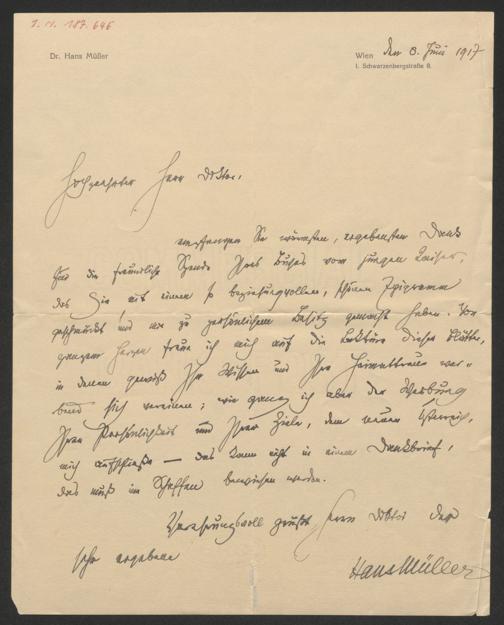 I. N. 187.646
Dr. Hans Müller
Wien den 8. Juni 1917
I. Schwarzenbergstraße 8.
Hochgeehrter Herr Doktor,
empfangen Sie wärmsten, ergebensten Dank
für die freundliche Spende Ihres Buches vom jungen Kaiser,
das Sie mit einem so beziehungsvollen, schönen Epigramm
geschmückt und mir zu persönlichem Besitz gemacht haben. Von
ganzem Herzen freue ich mich auf die Lektüre dieser Blätter,
in denen gewiß Ihr Wissen und Ihre Heimattreue wer-
bend sich vereinen; wie ganz ich aber der Werbung
Ihrer Persönlichkeit und Ihrer Ziele, dem neuen Österreich,
mich aufschließe — das kann nicht in einem Dankbrief,
das muß im Schaffen bewiesen werden.
Verehrungsvoll grüßt Herrn Doktor der
sehr ergebene
Hans Müller